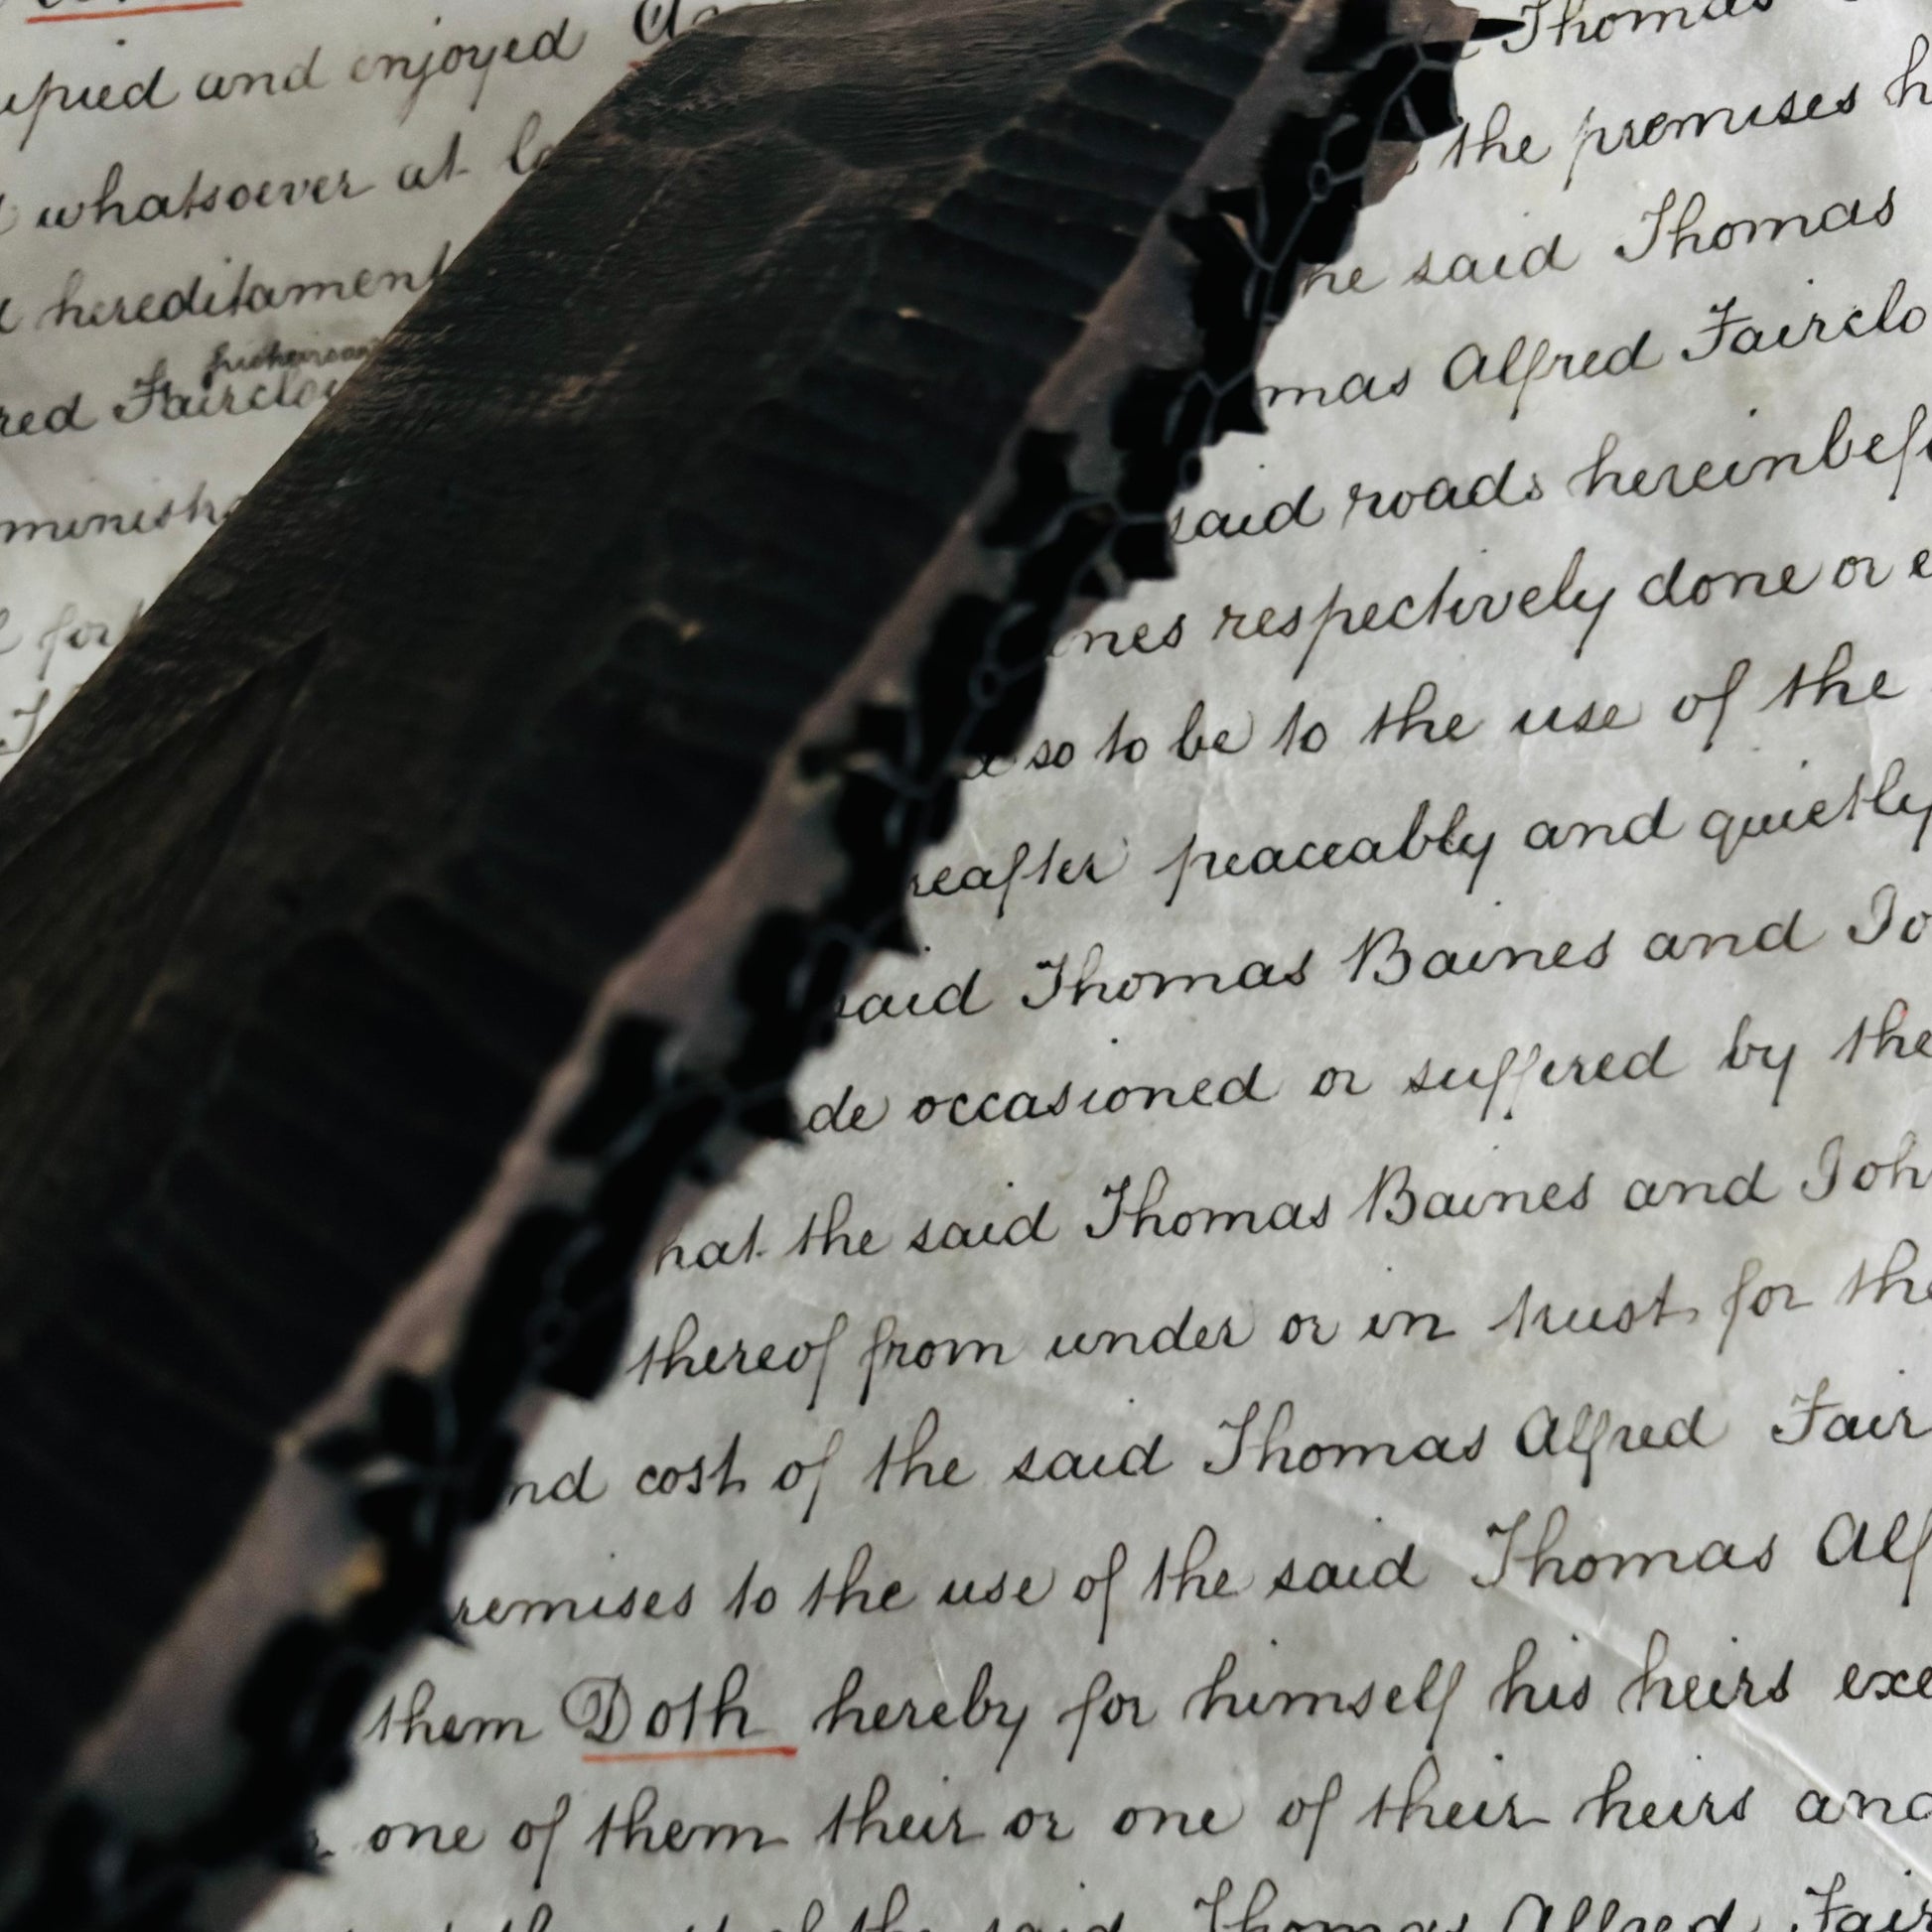 and enjoyed
whatsoever at
hereditament
Thomas
the premises
said Thomas
Alfred Fairclo
said roads hereinbef
respectively done or
so to be to the use of the
peaceably and quietly
said Thomas Baines and Jo
occasioned or suffered by the
the said Thomas Baines and Joh
thereof from under or in trust for the
cost of the said Thomas Alfred Fair
to the use of the said Thomas Alf
them Doth hereby for himself his heirs exe
one of them their or one of their heirs and
the said Thomas Alfred Fair